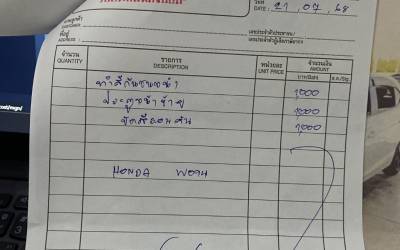 วันที่
DATE: 21, 07, 68
นามลูกค้า
CUSTOMER
ที่อยู่
ADDRESS
เลขประจำตัวประชาชน/
เลขประจำตัวผู้เสียภาษีอากร
จำนวน รายการ หน่วยละ จำนวนเงิน
QUANTITY DESCRIPTION UNIT PRICE AMOUNT
บาท(Baht) ส.ต./Stg.
ทำสีกันชนหน้า 1,000
ประตูหน้าซ้าย 1,000
ขัดสีรอบคัน 1,000
HONDA